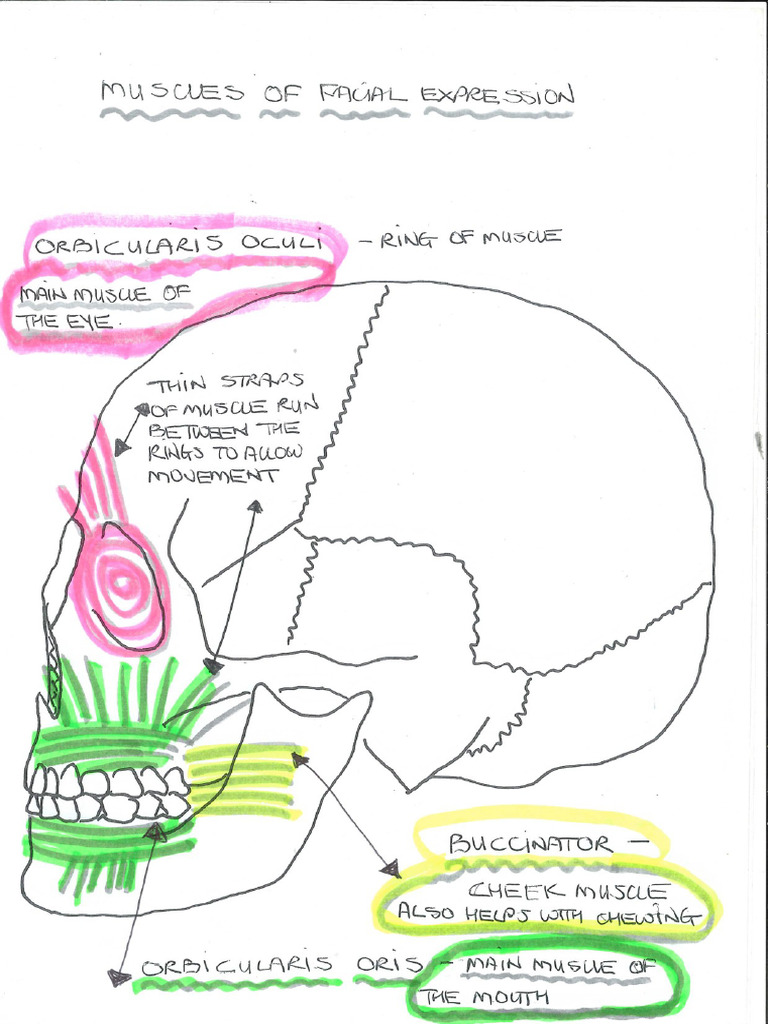 MUSCLES OF FACIAL EXPRESSION
ORBICULARIS OCULI - RING OF MUSCLE
MAIN MUSCLE OF
THE EYE.
THIN STRAPS
OF MUSCLE RUN
BETWEEN THE
RINGS TO ALLOW
MOVEMENT
BUCCINATOR -
CHEEK MUSCLE
ALSO HELPS WITH CHEWING
ORBICULARIS ORIS - MAIN MUSCLE OF
THE MOUTH